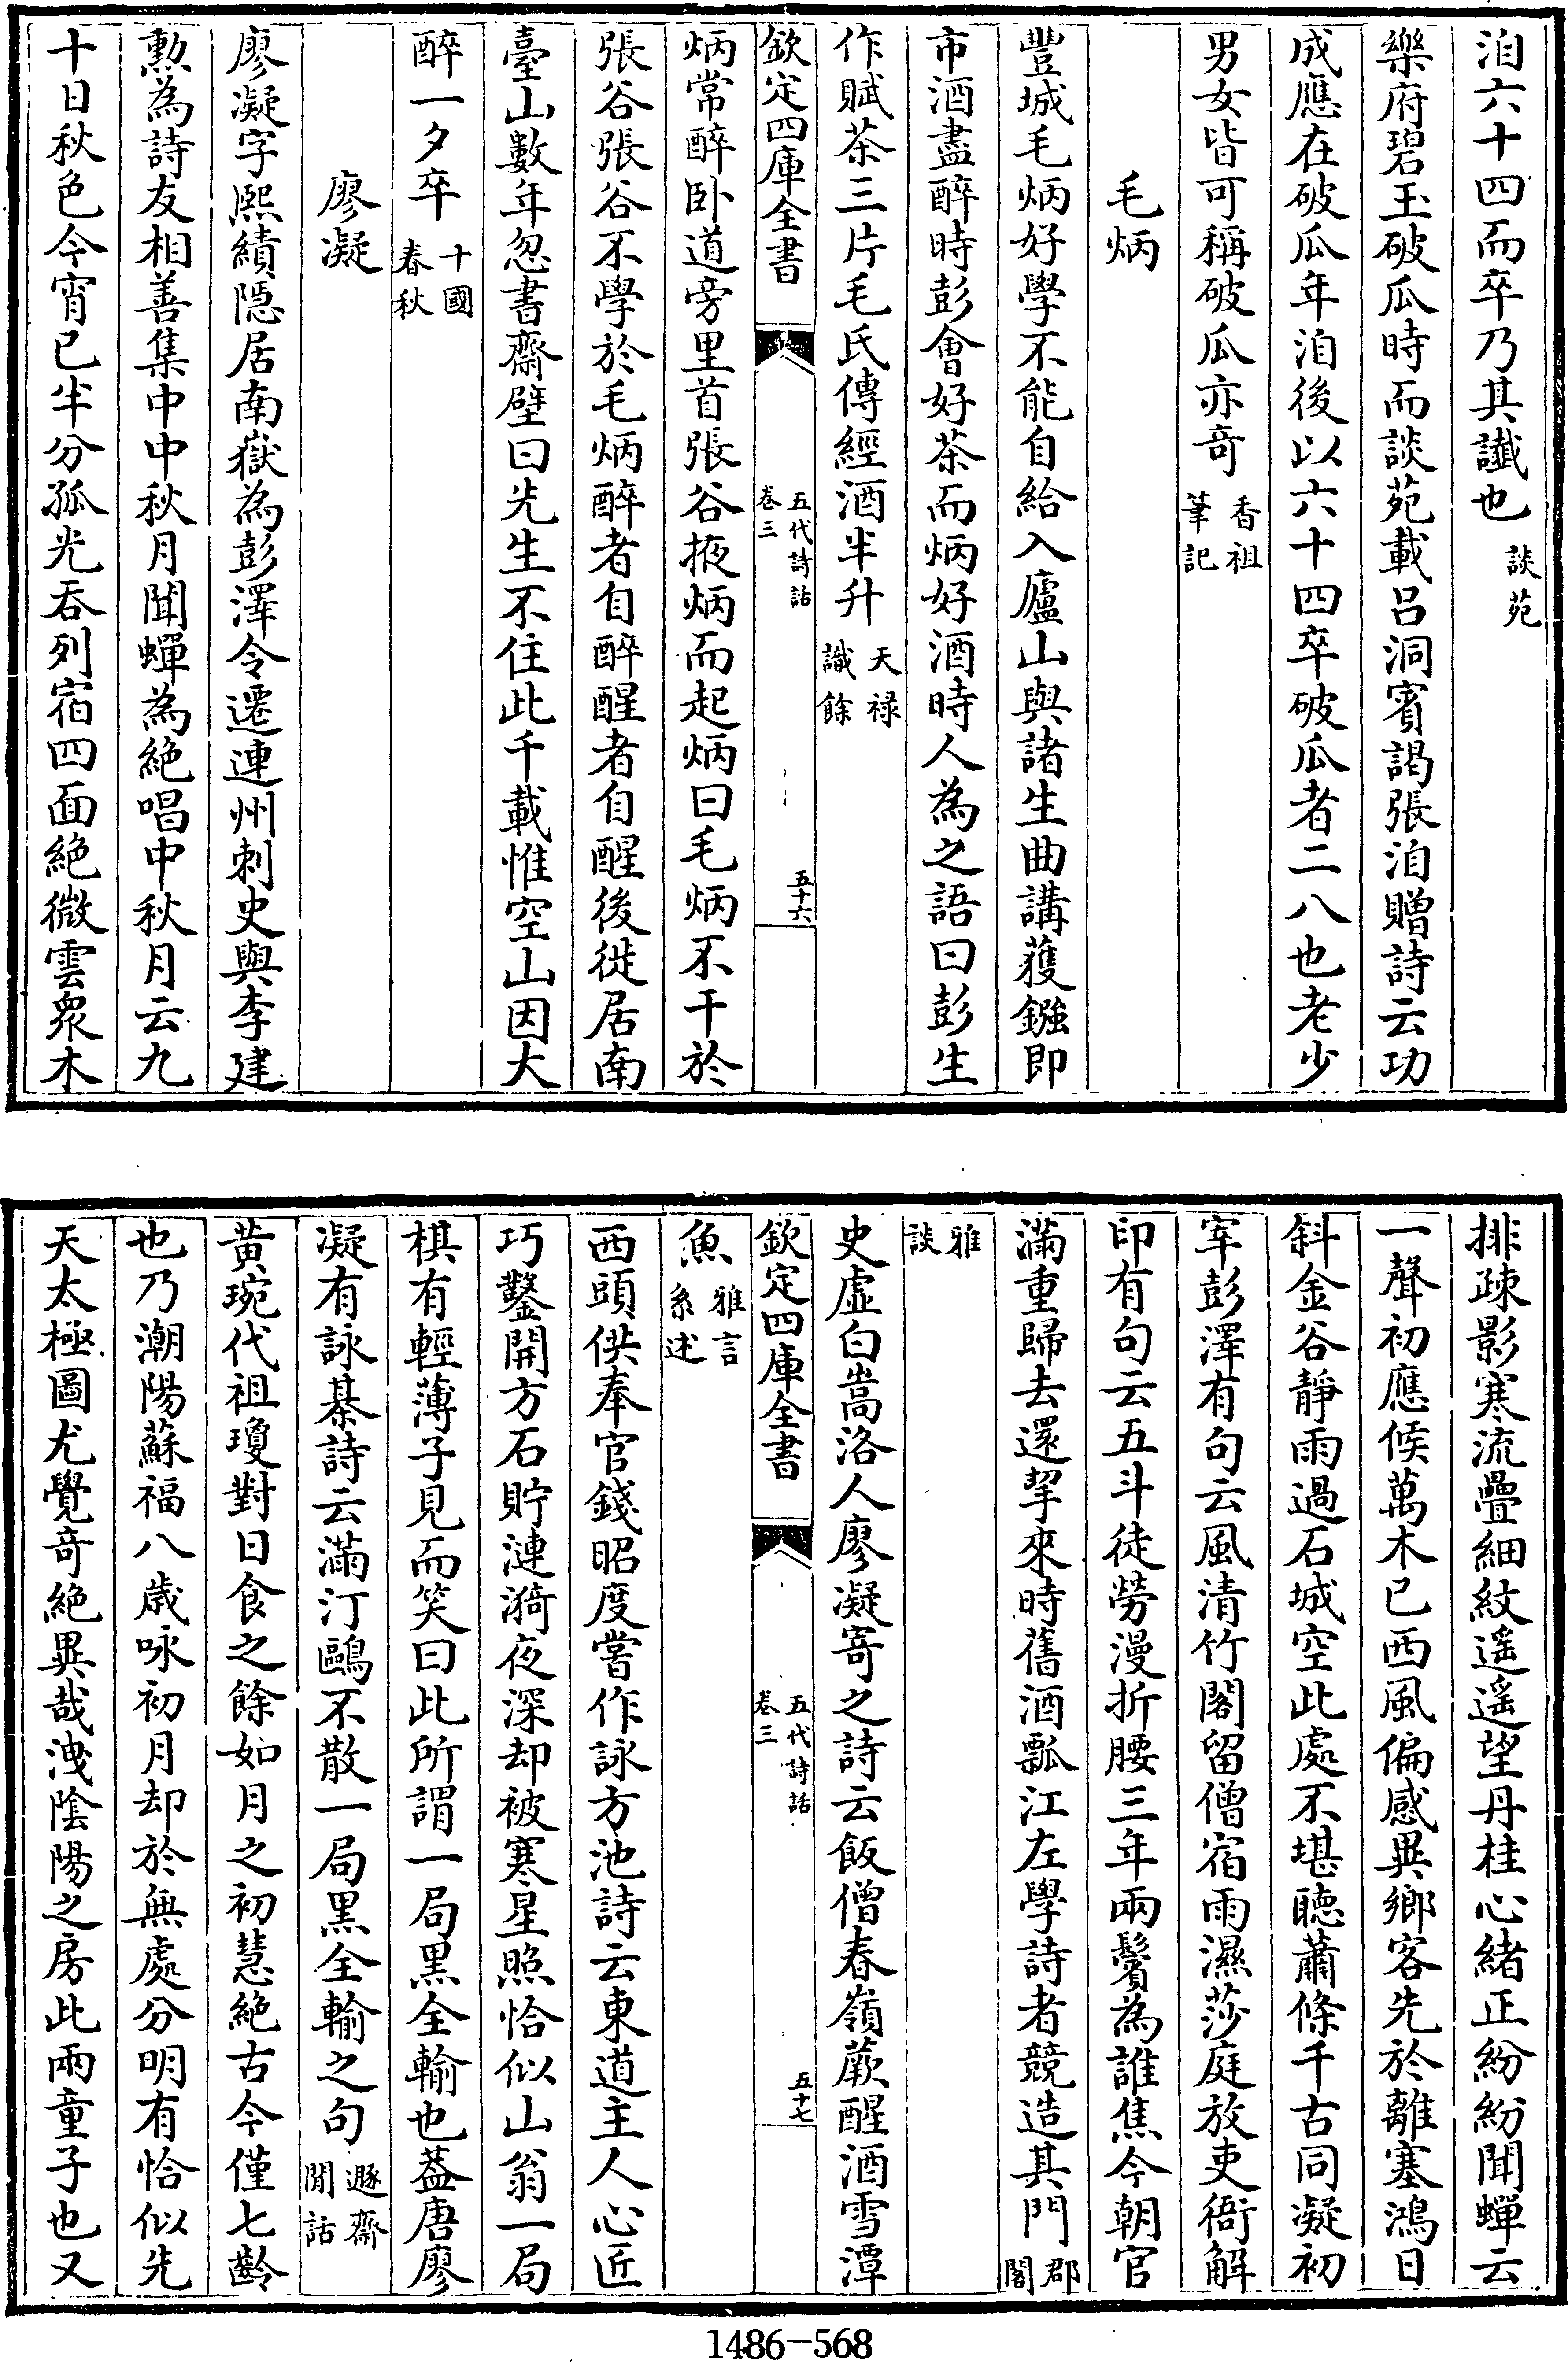 洎六十四而卒乃其讖也談苑
樂府碧玉破瓜時而談苑載呂洞賓謁張洎贈詩云功
成應在破瓜年洎後以六十四卒破瓜者二八也老少
男女皆可稱破瓜亦奇香祖筆記
毛炳
豐城毛炳好學不能自給入廬山與諸生曲講獲鏹即
市酒盡醉時彭會好茶而炳好酒時人為之語曰彭生
作賦茶三片毛氏傳經酒半升天禄識餘
欽定四庫全書 五代詩話卷三 五十六
炳常醉卧道旁里首張谷掖炳而起炳曰毛炳不干於
張谷張谷不學於毛炳醉者自醉醒者自醒後徙居南
臺山數年忽書齋壁曰先生不住此千載惟空山因大
醉一夕卒十國春秋
廖凝
廖凝字熙績隱居南嶽為彭澤令遷連州刺史與李建
勲為詩友相善集中中秋月聞蟬為絶唱中秋月云九
十日秋色今宵已半分孤光吞列宿四面絶微雲衆木
排疎影寒流疊細紋遥遥望丹桂心緒正紛紛聞蟬云
一聲初應候萬木已西風偏感異鄉客先於離塞鴻日
斜金谷靜雨過石城空此處不堪聽蕭條千古同凝初
宰彭澤有句云風清竹閣留僧宿雨濕莎庭放吏衙解
印有句云五斗徒勞漫折腰三年兩鬢為誰焦今朝官
滿重歸去還挈來時舊酒瓢江左學詩者競造其門郡閣
雅談
史虚白嵩洛人廖凝寄之詩云飯僧春嶺蕨醒酒雪潭
欽定四庫全書 五代詩話卷三 五十七
魚雅言系述
西頭供奉官錢昭度嘗作詠方池詩云東道主人心匠
巧鑿開方石貯漣漪夜深却被寒星照恰似山翁一局
棋有輕薄子見而笑曰此所謂一局黑全輸也葢唐廖
凝有詠棊詩云滿汀鷗不散一局黑全輸之句遯齋閒話
黄琬代祖瓊對日食之餘如月之初慧絶古今僅七齡
也乃潮陽蘇福八歳咏初月却於無處分明有恰似先
天太極圖尤覺奇絶異哉洩陰陽之房此兩童子也又
1486—568